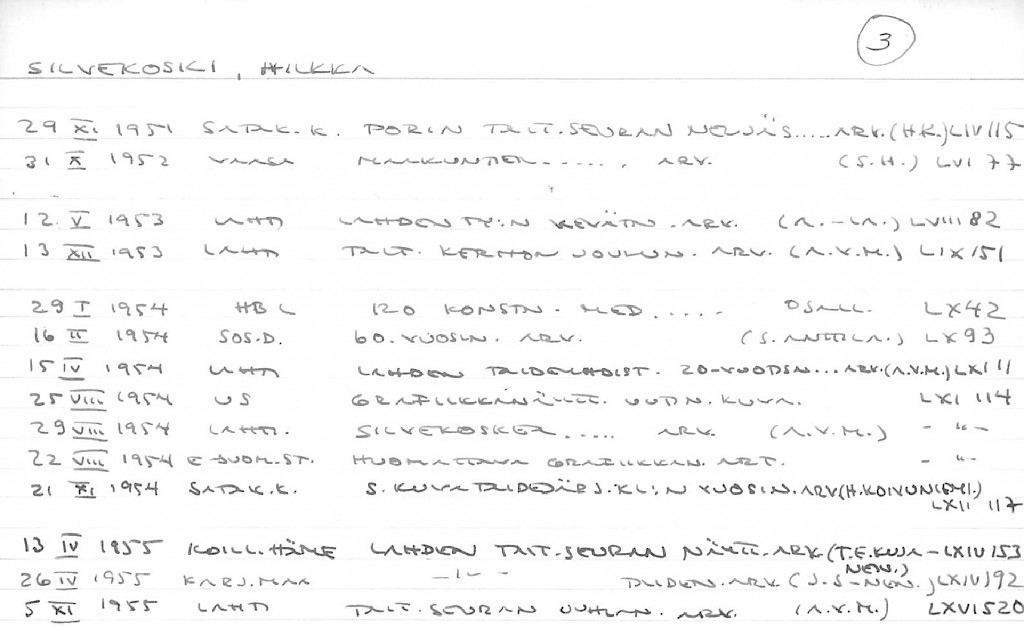 3
SILVEKOSKI, HILKKA
29 XI 1951 SATAK.K. PORIN TAIT.SEURAN NELJÄS.....ARV.(H.K.) LIV 115
31 X 1952 VAASA MAAKUNTIEN......, ARV. (S.H.) LVI 77
12. V 1953 LAHTI LAHDEN TY:N KEVÄTN. ARV. (A.-LA.) LVIII 82
13 XII 1953 LAHTI TAIT. KERHON JOULUN. ARV. (A.V.M.) LIX 151
29 I 1954 HBL 120 KONSTN. MED..... OSALL. LX 42
16 II 1954 SOS.D. 60.VUOSIN. ARV. (S. ANTTILA.) LX 93
15 IV 1954 LAHTI LAHDEN TAIDENHOIST. 20-VUODSN...ARV.(A.V.M.) LXI 11
25 VIII 1954 US GRAFIIKKANÄYTT. UUTN. KUVA. LXI 114
29 VIII 1954 LAHTI. SILVEKOSKEN..... ARV. (A.V.M.) - " -
22 VIII 1954 E-SUOM.ST. HUOMATTAVA GRAFIIKKAN. ART. - " -
21 XI 1954 SATAK.K. S.KUVATAIDEJÄRJ.KL:N VUOSIN.ARV(H.KOIVUNIEMI.)
LXII 117
13 IV 1955 KOILL.HÄME LAHDEN TAIT-SEURAN NÄYTT.ARV.(T.E.KUJA- LXIV 153
NEN.)
26 IV 1955 KARJ.MAA -"- TAIDEN.ARV.(J.S-NEN.) LXIV 92
5 XI 1955 LAHTI TAIT.SEURAN JUHLAN. ARV. (A.V.M.) LXVI 520